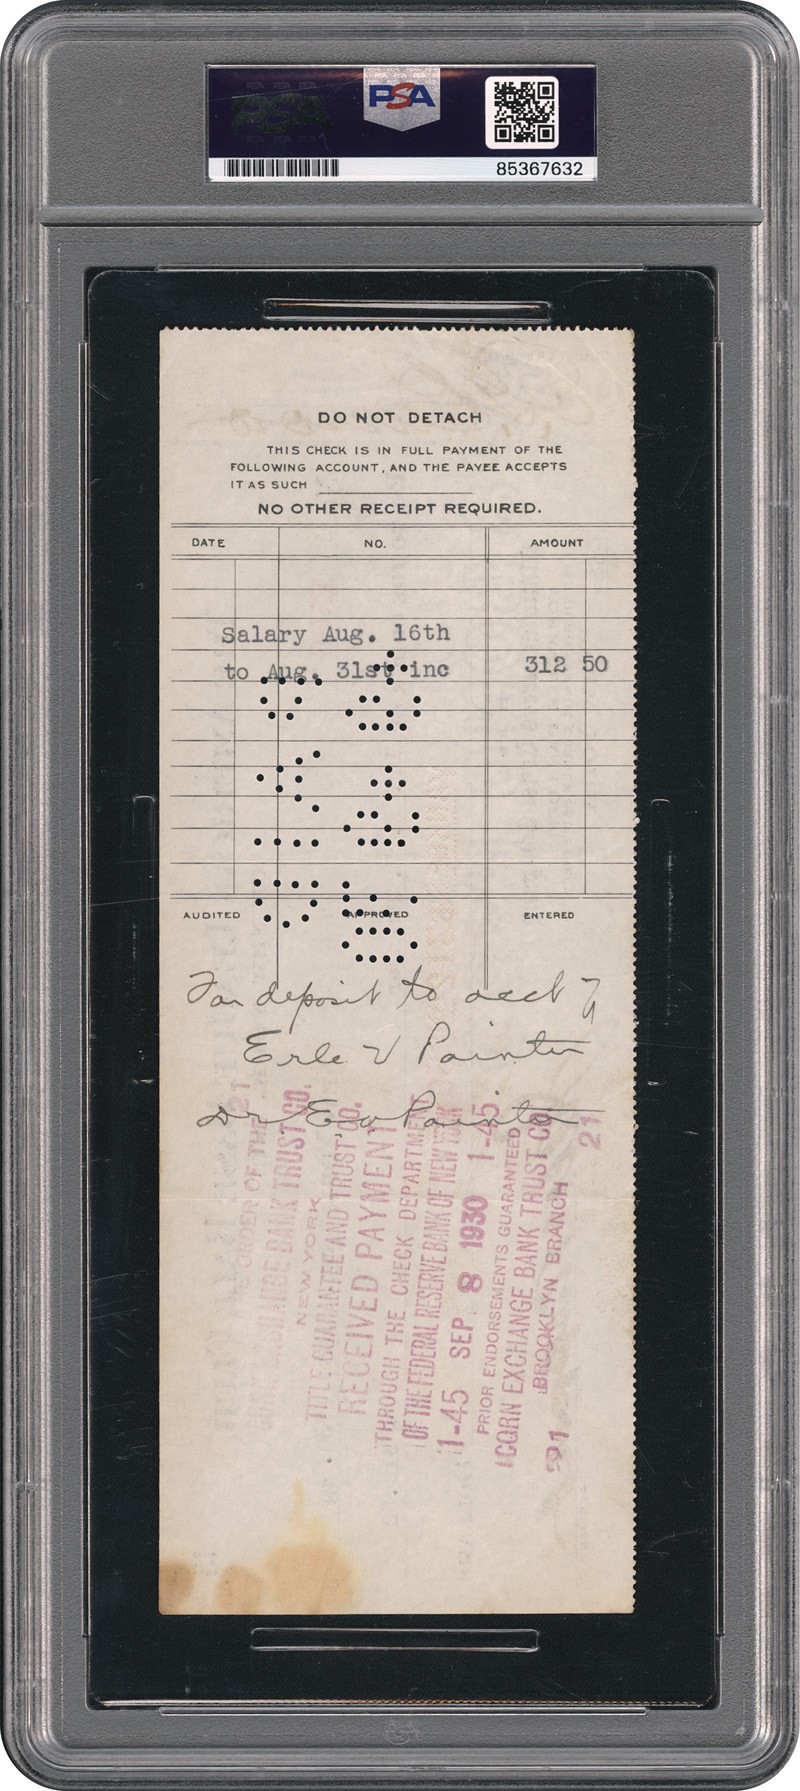 PSA
85367632
DO NOT DETACH
THIS CHECK IS IN FULL PAYMENT OF THE
FOLLOWING ACCOUNT, AND THE PAYEE ACCEPTS
IT AS SUCH
NO OTHER RECEIPT REQUIRED.
DATE NO. AMOUNT
Salary Aug. 16th
to Aug. 31st inc 312 50
AUDITED APPROVED ENTERED
For deposit to acct of
Erle V Painter
Dr E V Painter
21
ORDER OF THE
BANK TRUST CO.
NEW YORK
TITLE GUARANTEE AND TRUST CO.
RECEIVED PAYMENT
THROUGH THE CHECK DEPARTMENT
OF THE FEDERAL RESERVE BANK OF NEW YORK
1-45 SEP 8 1930 1-45
PRIOR ENDORSEMENTS GUARANTEED
CORN EXCHANGE BANK TRUST CO.
BROOKLYN BRANCH
21